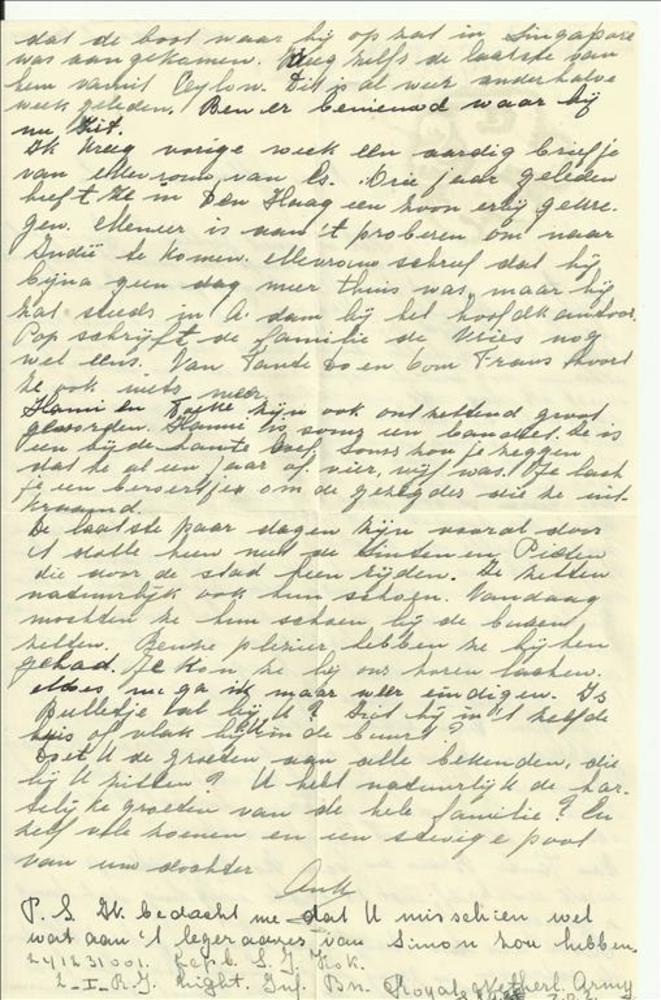 dat de boot waar hij op zat in Singapore
was aangekomen. Kreeg zelfs de laatste van
hem vanuit Ceylon. Dit is al weer anderhalve
week geleden. Ben er benieuwd waar hij
nu zit.
Ik kreeg vorige week een aardig briefje
van Mevrouw van Es. Drie jaar geleden
heeft ze in Den Haag een zoon erbij gekre-
gen. Meneer is aan 't proberen om naar
Indië te komen. Mevrouw schreef dat hij
bijna geen dag meer thuis was, maar hij
zat steeds in A. dam bij het hoofdkantoor.
Pop schrijft de familie de Vries nog
wel eens. Van Tante Do en Oom Frans hoort
ze ook niets meer.
Hanni en Toeke zijn ook ontzettend groot
geworden. Hanni is soms een bandiet. Ze is
een bijdehante soms zou je zeggen
dat ze al een jaar of vier, vijf was. Je lach
je een beroertje om de gezegdes die ze uit-
kraamd.
De laatste paar dagen zijn vooral door
't dolle heen met de Sinten en Pieten
die door de stad heen rijden. Ze zetten
natuurlijk ook hun schoen. Vandaag
mochten ze hun schoen bij de buren
zetten. plezier hebben ze bij hen
gehad. Je kon ze bij ons horen lachen.
nu ga ik maar weer eindigen. Is
Bulletje al bij U? Ziet hij in 't zelfde
huis of vlak bij U in de buurt?
Doet U de groeten aan alle bekenden, die
bij U zitten? U hebt natuurlijk de har-
telijke groeten van de hele familie? En
zelf vele zoenen en een stevige poot
van uw dochter
Ank
P.S. Ik bedacht me dat U misschien wel
wat aan 't legeradres van Simon zou hebben.
241231001. Kapl. S. J. Kok.
2-I-R.J. Light. Inf. Bn. Royal Netherl. Army